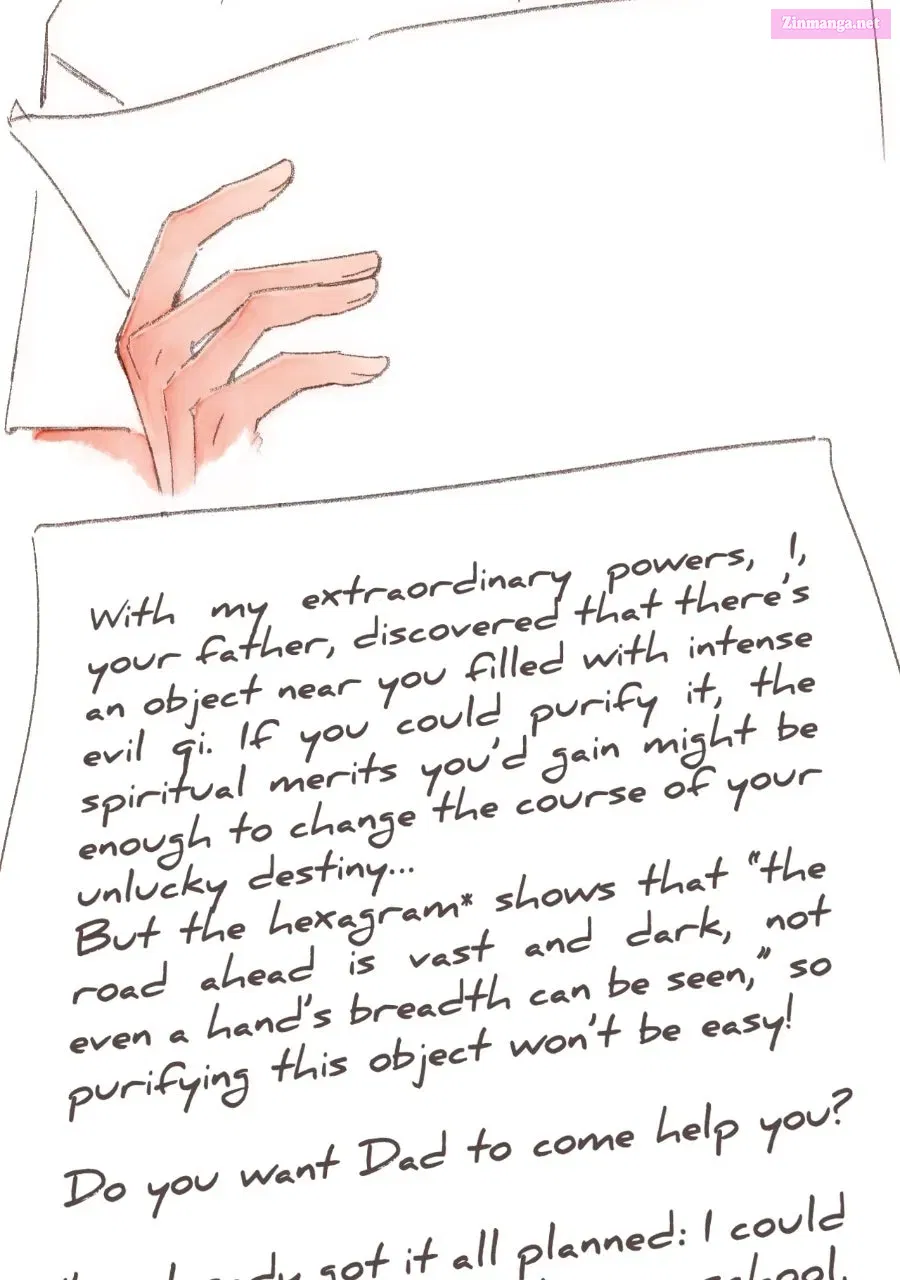 Zinmanga.net
With my extraordinary powers, I,
your father, discovered that there's
an object near you filled with intense
evil qi. If you could purify it, the
spiritual merits you'd gain might be
enough to change the course of your
unlucky destiny...
But the hexagram* shows that "the
road ahead is vast and dark, not
even a hand's breadth can be seen," so
purifying this object won't be easy!
Do you want Dad to come help you?
got it all planned: I could
school,